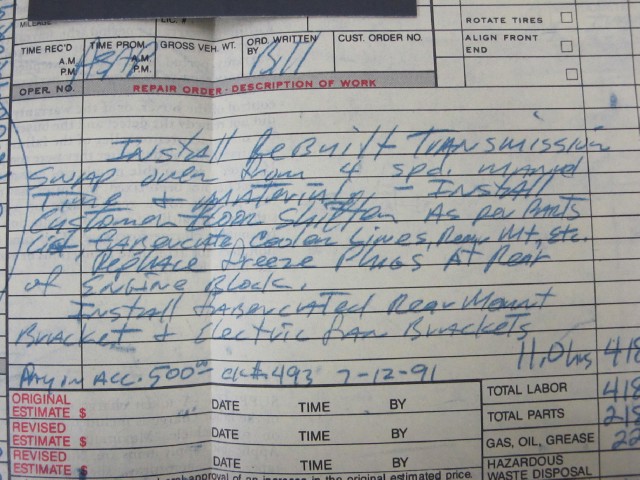 MILEAGE LIC. #
ROTATE TIRES
ALIGN FRONT END
TIME REC'D A.M. P.M. TIME PROM. A.M. P.M. GROSS VEH. WT. ORD. WRITTEN BY Bill CUST. ORDER NO.
OPER. NO. REPAIR ORDER - DESCRIPTION OF WORK
Install Rebuilt Transmission
Swap over from 4 spd. manual
Time & Material - Install
Customer Floor Shifter As per Parts
List Fabercate Cooler Lines, Rear Mt, etc.
Replace Freeze Plugs At Rear
of Engine Block.
Install Fabercated Rear Mount
Bracket & Electric Fan Brackets
11.0 hrs 418
Pay in Acc. 500.00 ck# 493 7-12-91
ORIGINAL ESTIMATE $ DATE TIME BY
REVISED ESTIMATE $ DATE TIME BY
REVISED ESTIMATE $ DATE TIME BY
TOTAL LABOR 418
TOTAL PARTS 218
GAS, OIL, GREASE 22
HAZARDOUS WASTE DISPOSAL
approval of an increase in the original estimated price.